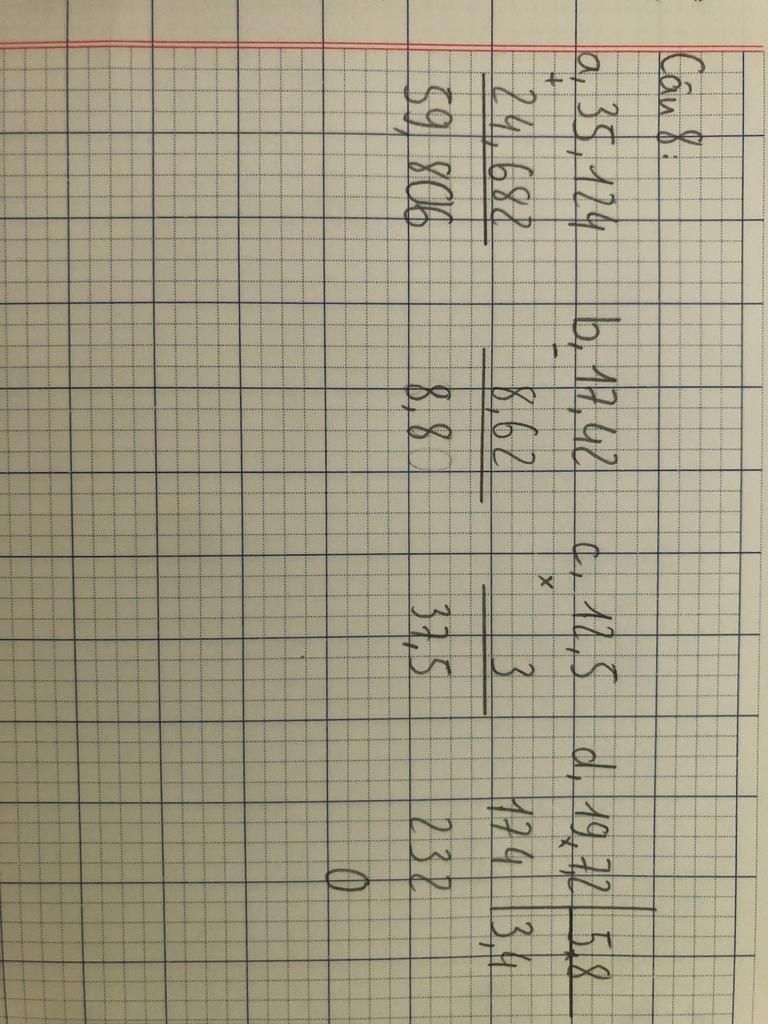 Câu 8:
a, 35,124 b, 17,42 c, 12,5 d, 19,7,2 5,8
+ - x
24,682 8,62 3 174 3,4
59,806 8,80 37,5 232
0